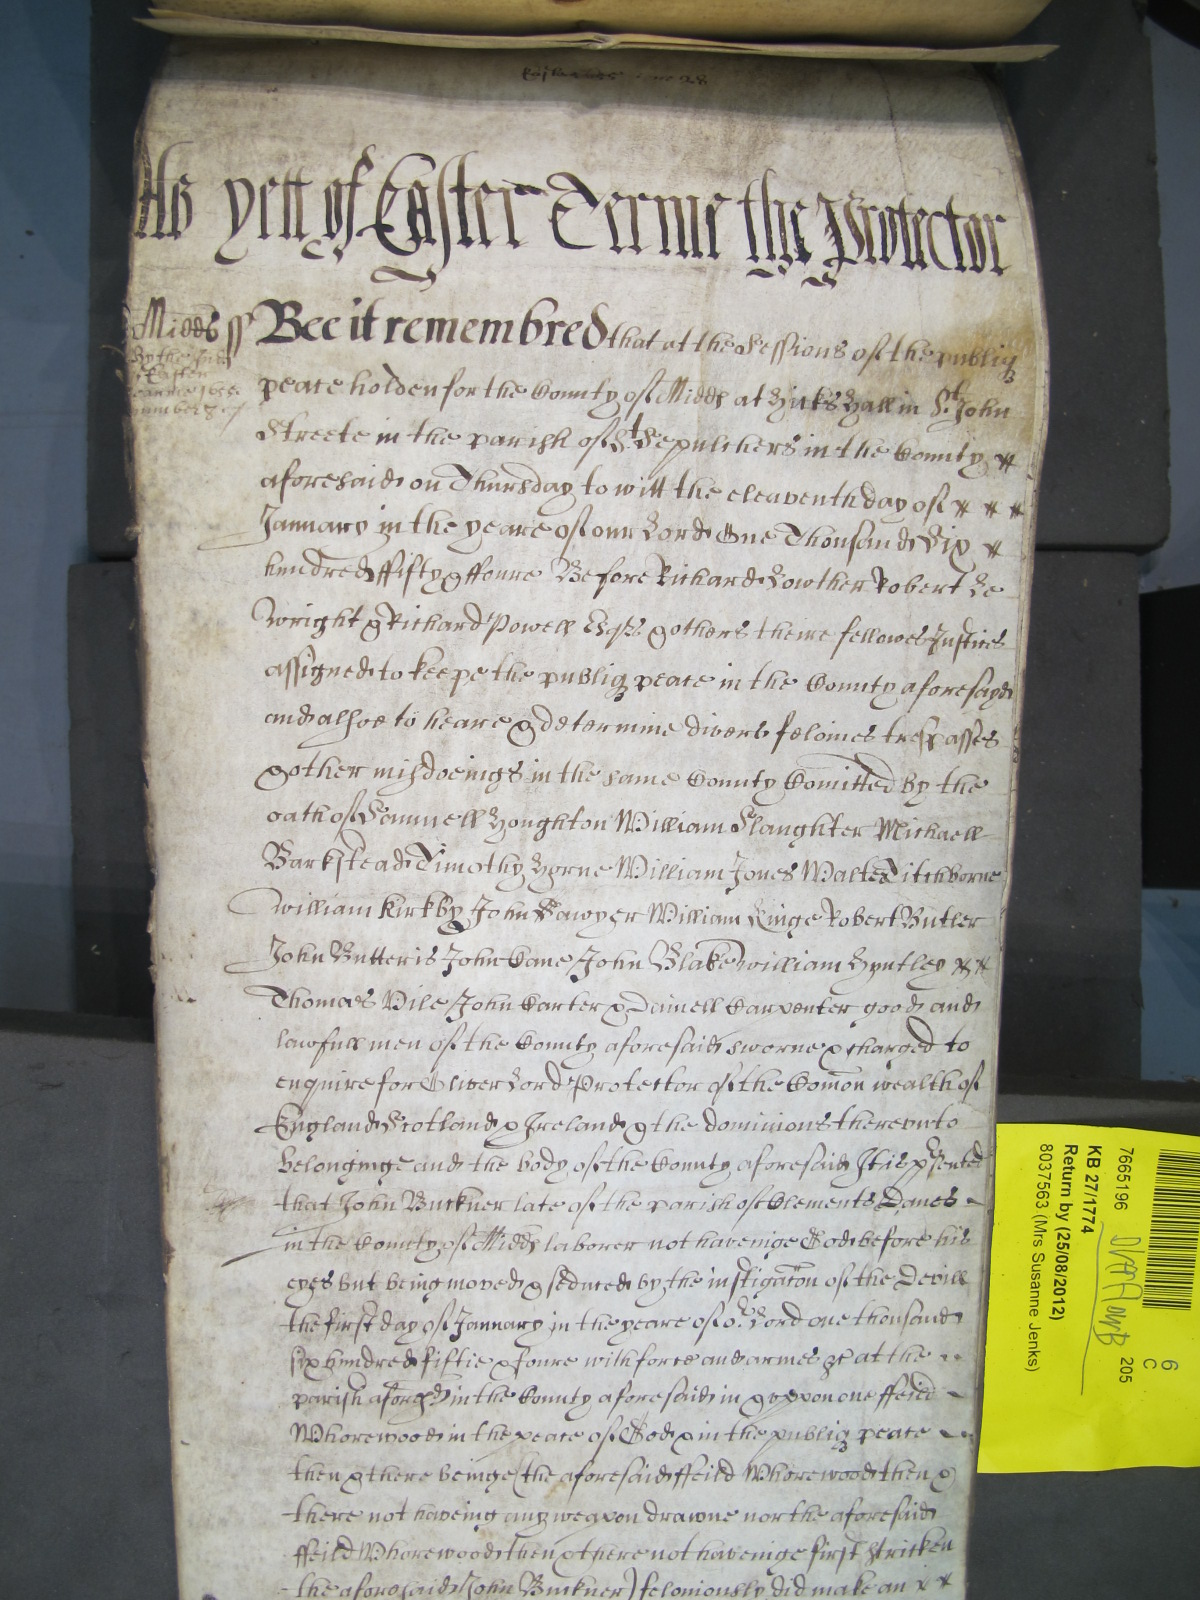 As yett of Easter Terme the Protector
Midds ss Bee it remembred that at the Sessions of the publiq
peace holden for the County of Midds at Hicks Hall in St John
Streete in the parish of St Sepulchers in the County
aforesaid on Thursday to witt the eleaventh day of
January in the yeare of our Lord One Thousand Six
hundred ffifty & ffoure Before Richard Lowther Robert Le
Wright & Richard Powell Esqrs & others theire fellowes Justices
assigned to keepe the publiq peace in the County aforesayd
and alsoe to heare & determine divers felonies trespasses
& other misdoeings in the same County Comitted by the
oath of Samuell Houghton William Slaughter Michaell
Barkstead Timothy Horne William Jones Walter Titchborne
William Kirkby John Sawyer William Ringe Robert Butler
John Butteris John Cane John Blake William Hyntley
Thomas Vile John Carter & Daniell Carpenter good and
lawfull men of the County aforesaid sworne & charged to
enquire for Oliver Lord Protector of the Comon wealth of
England Scotland & Ireland & the dominions thereunto
belonginge and the body of the County aforesaid It is psented
that John Buckner late of the parish of Clements Danes
in the County of Midds laborer not haveinge God before his
eyes but being moved & seduced by the instigacon of the Devill
the first day of January in the yeare of or Lord one thousand
six hundred fiftie & foure with force and armes &c at the
parish aforesd in the County aforesaid in & uppon one ffeild
Whorewood in the peace of God & in the publiq peace
then & there beinge (the aforesaid ffeild Whorewood then &
there not haveing any weapon drawne nor the aforesaid
ffeild Whorewood then & there not haveinge first stricken
the aforesaid John Buckner) feloniously did make an
7665196
205
6
C
KB 27/1774
Return by (25/08/2012)
8037563 (Mrs Susanne Jenks)